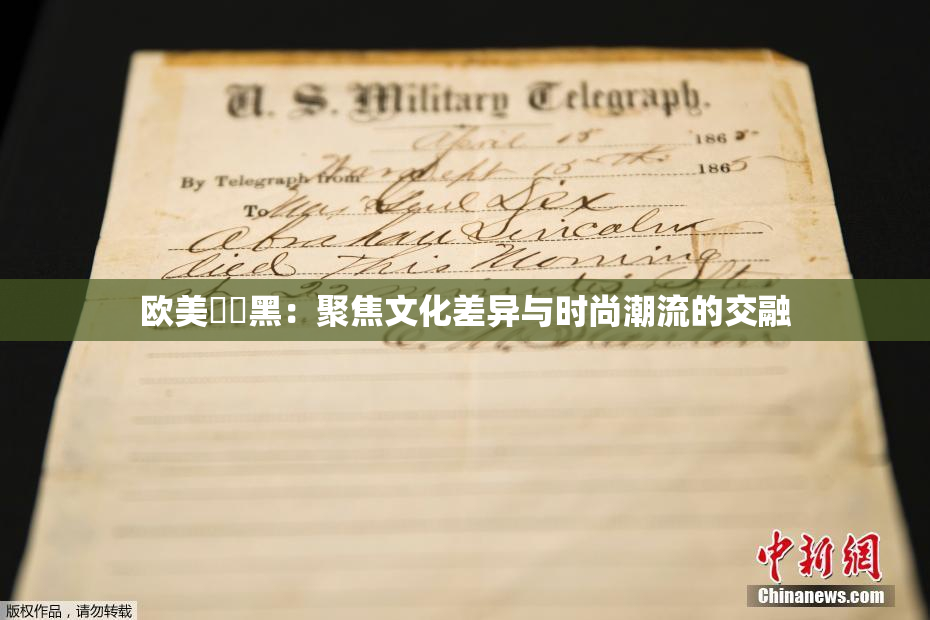 U. S. Military Telegraph.
April 15 1865
By Telegraph from War Dept 15th 1865
To Maj Genl Dix
Abraham Lincoln
died This Morning
at 22 minutes after
欧美黑：聚焦文化差异与时尚潮流的交融
E. M. Stanton
中新網
Chinanews.com
版权作品，请勿转载